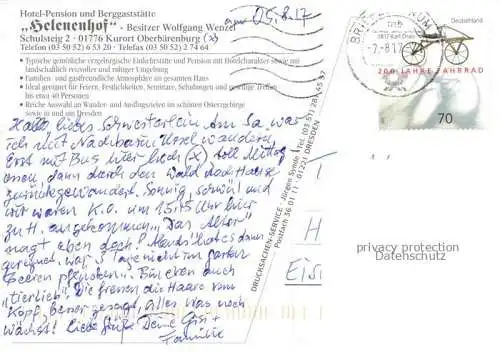 Hotel-Pension und Berggaststätte
„Helenenhof" - Besitzer Wolfgang Wenzel
Schulsteig 2 · 01776 Kurort Oberbärenburg (x)
Telefon (03 50 52) 6 53 20 · Telefax (03 50 52) 2 74 64
• Typische gemütliche erzgebirgische Einkehrstätte und Pension mit Hotelcharakter sowie mit
landschaftlich reizvoller und ruhiger Umgebung
• Familien- und gastfreundliche Atmosphäre im gesamten Haus
• Ideal geeignet für Feiern, Festlichkeiten, Seminare, Schulungen und sonstige Treffen
bis etwa 40 Personen
• Reiche Auswahl an Wander- und Ausflugszielen im schönen Osterzgebirge
sowie in und um Dresden
05.8.17
Hallo liebes Schwesterlein am Sa. was
ich mit Nachbarin Ursel wandern.
Erst mit Bus hier hoch (x) toll Mittag
essen, dann durch den Wald nach Hause
zurückgewandert. Sonnig, schwül und
wir waren K.O. um 15:45 Uhr hier
zu H. angekommen. „Das Alter"
nagt eben doch! Abends hat es dann
geregnet, war 3 Tage nicht im Garten
Beeren pflücken. Bin eben auch
"tierlieb". Die fressen die Haare vom
Kopf, besser gesagt, alles was noch
wächst! Liebe Grüße Deine Gisi +
Familie
DRUCKSACHEN-SERVICE · Jürgen Synde · Tel. (03 51) 38 45 37
Postfach 36 01 11 · 01221 DRESDEN
H
Eis
BRIEFZENTRUM
mb
-7.-8.17
Deutschland
1817 Karl Drais
200 JAHRE FAHRRAD
70
privacy protection
Datenschutz